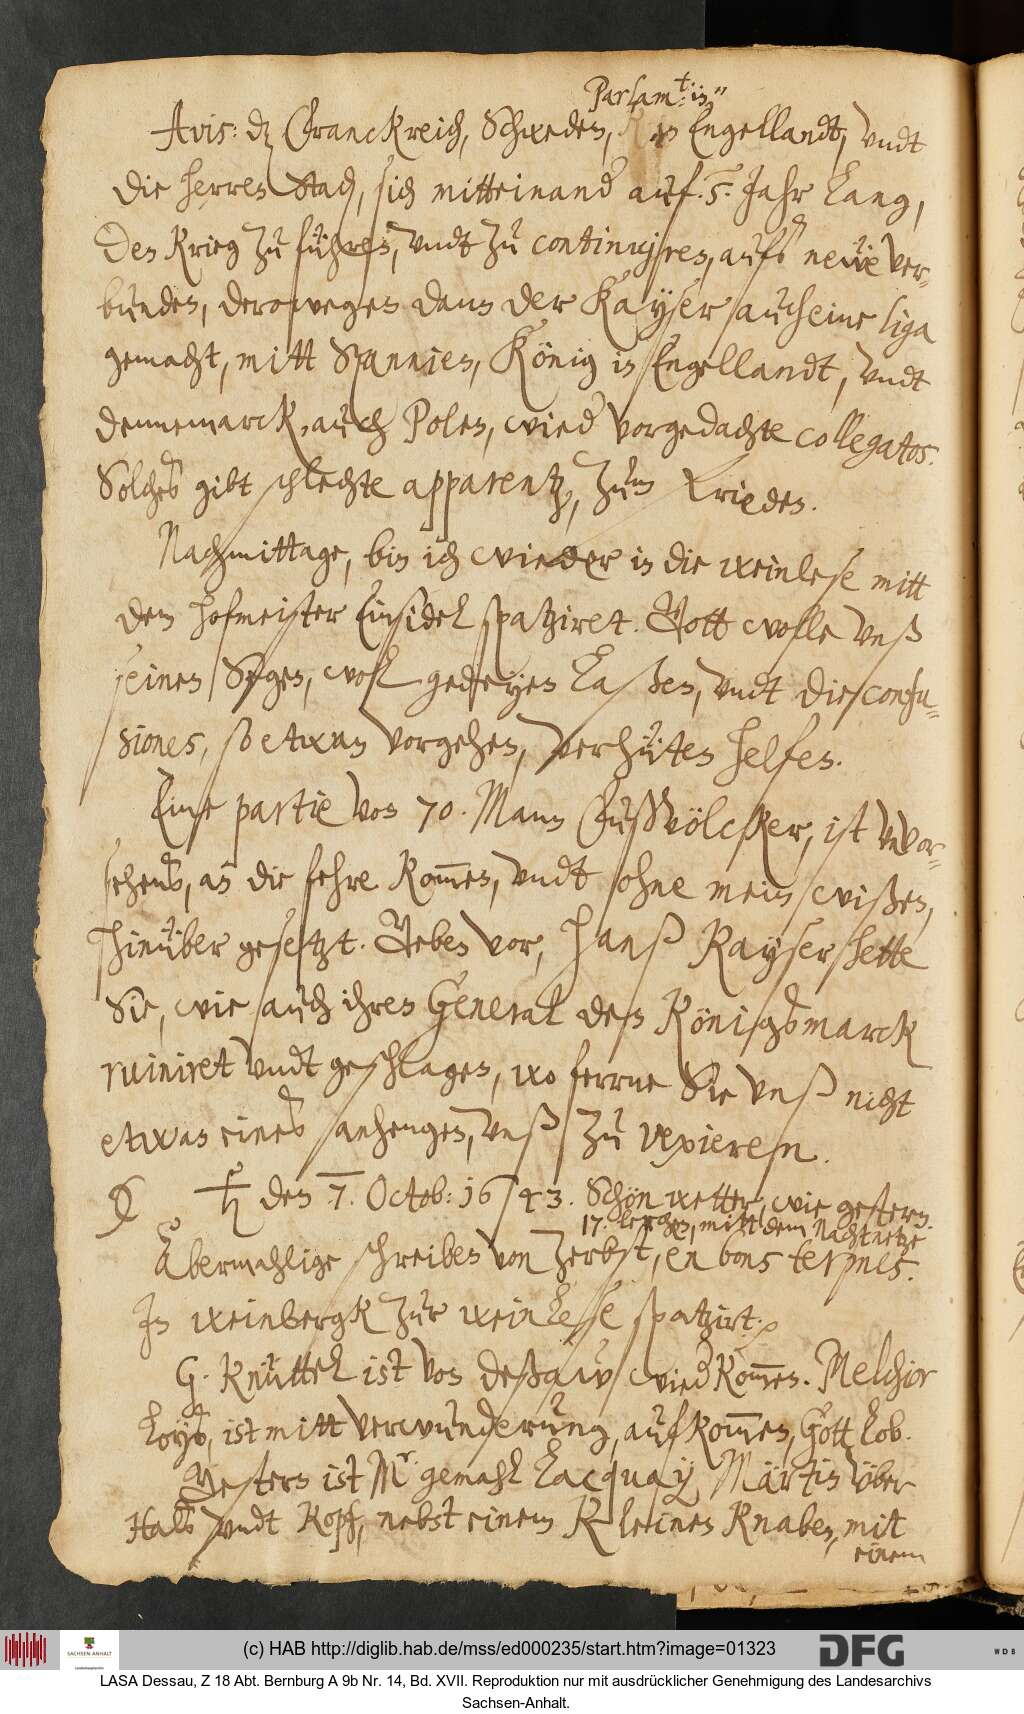 Parlam.t: in"
Avis: dz Franckreich, Schweden, Engellandt, vndt
die herren Stad, sich mitteinand auf .5. Jahr lang,
den Krieg zu führen, vndt zu continujren, aufs neẅe ver-
bunden, derowegen dann der Kayser auch eine liga
gemacht, mitt Spannien, König in Engellandt, vndt
dennemarck, auch Polen, wied vorgedachte collegatos.
Solches gibt schlechte apparentz, zum Frieden.
Nachmittage, bin ich wieder in die weinlese mitt
dem hofmeister Einsidel spatziret. Gott wolle vnß
seinen Segen, wol gedeyen laßen, vndt die confu-
siones, so etwan vorgehen, verhüten helfen.
Eine partie von 70. Mann Fußvölcker, ist vnvor-
sehens, an die fehre kom̅en, vndt ohne mein wißen,
hinüber gesetzt. Geben vor, Hanß Kayser hette
Sie, wie auch ihren General den Königsmarck
ruiniret vndt geschlagen, wo ferrne Sie vnß nicht
etwas eines anhengen, vnß zu vexieren.
♄ den .7. Octob: 1643. Schön wetter, wie gestern.
17. lerchen, mitt dem Nachtnetze
Abermahlige schreiben von Zerbst, en bons termes.
In weinbergk zur weinlese spatzirt.
G. Knüttel ist von deßaw wied kom̅en. Melchior
Loyß, ist mitt verwunderung, aufkom̅en, Gott lob.
Gestern ist Mr. gemahl Lacquay Märtin vber
Halß vndt Kopf, nebst einem kleinen Knaben, mit
einem
(c) HAB http://diglib.hab.de/mss/ed000235/start.htm?image=01323
SACHSEN-ANHALT
DFG
WDB
LASA Dessau, Z 18 Abt. Bernburg A 9b Nr. 14, Bd. XVII. Reproduktion nur mit ausdrücklicher Genehmigung des Landesarchivs
Sachsen-Anhalt.